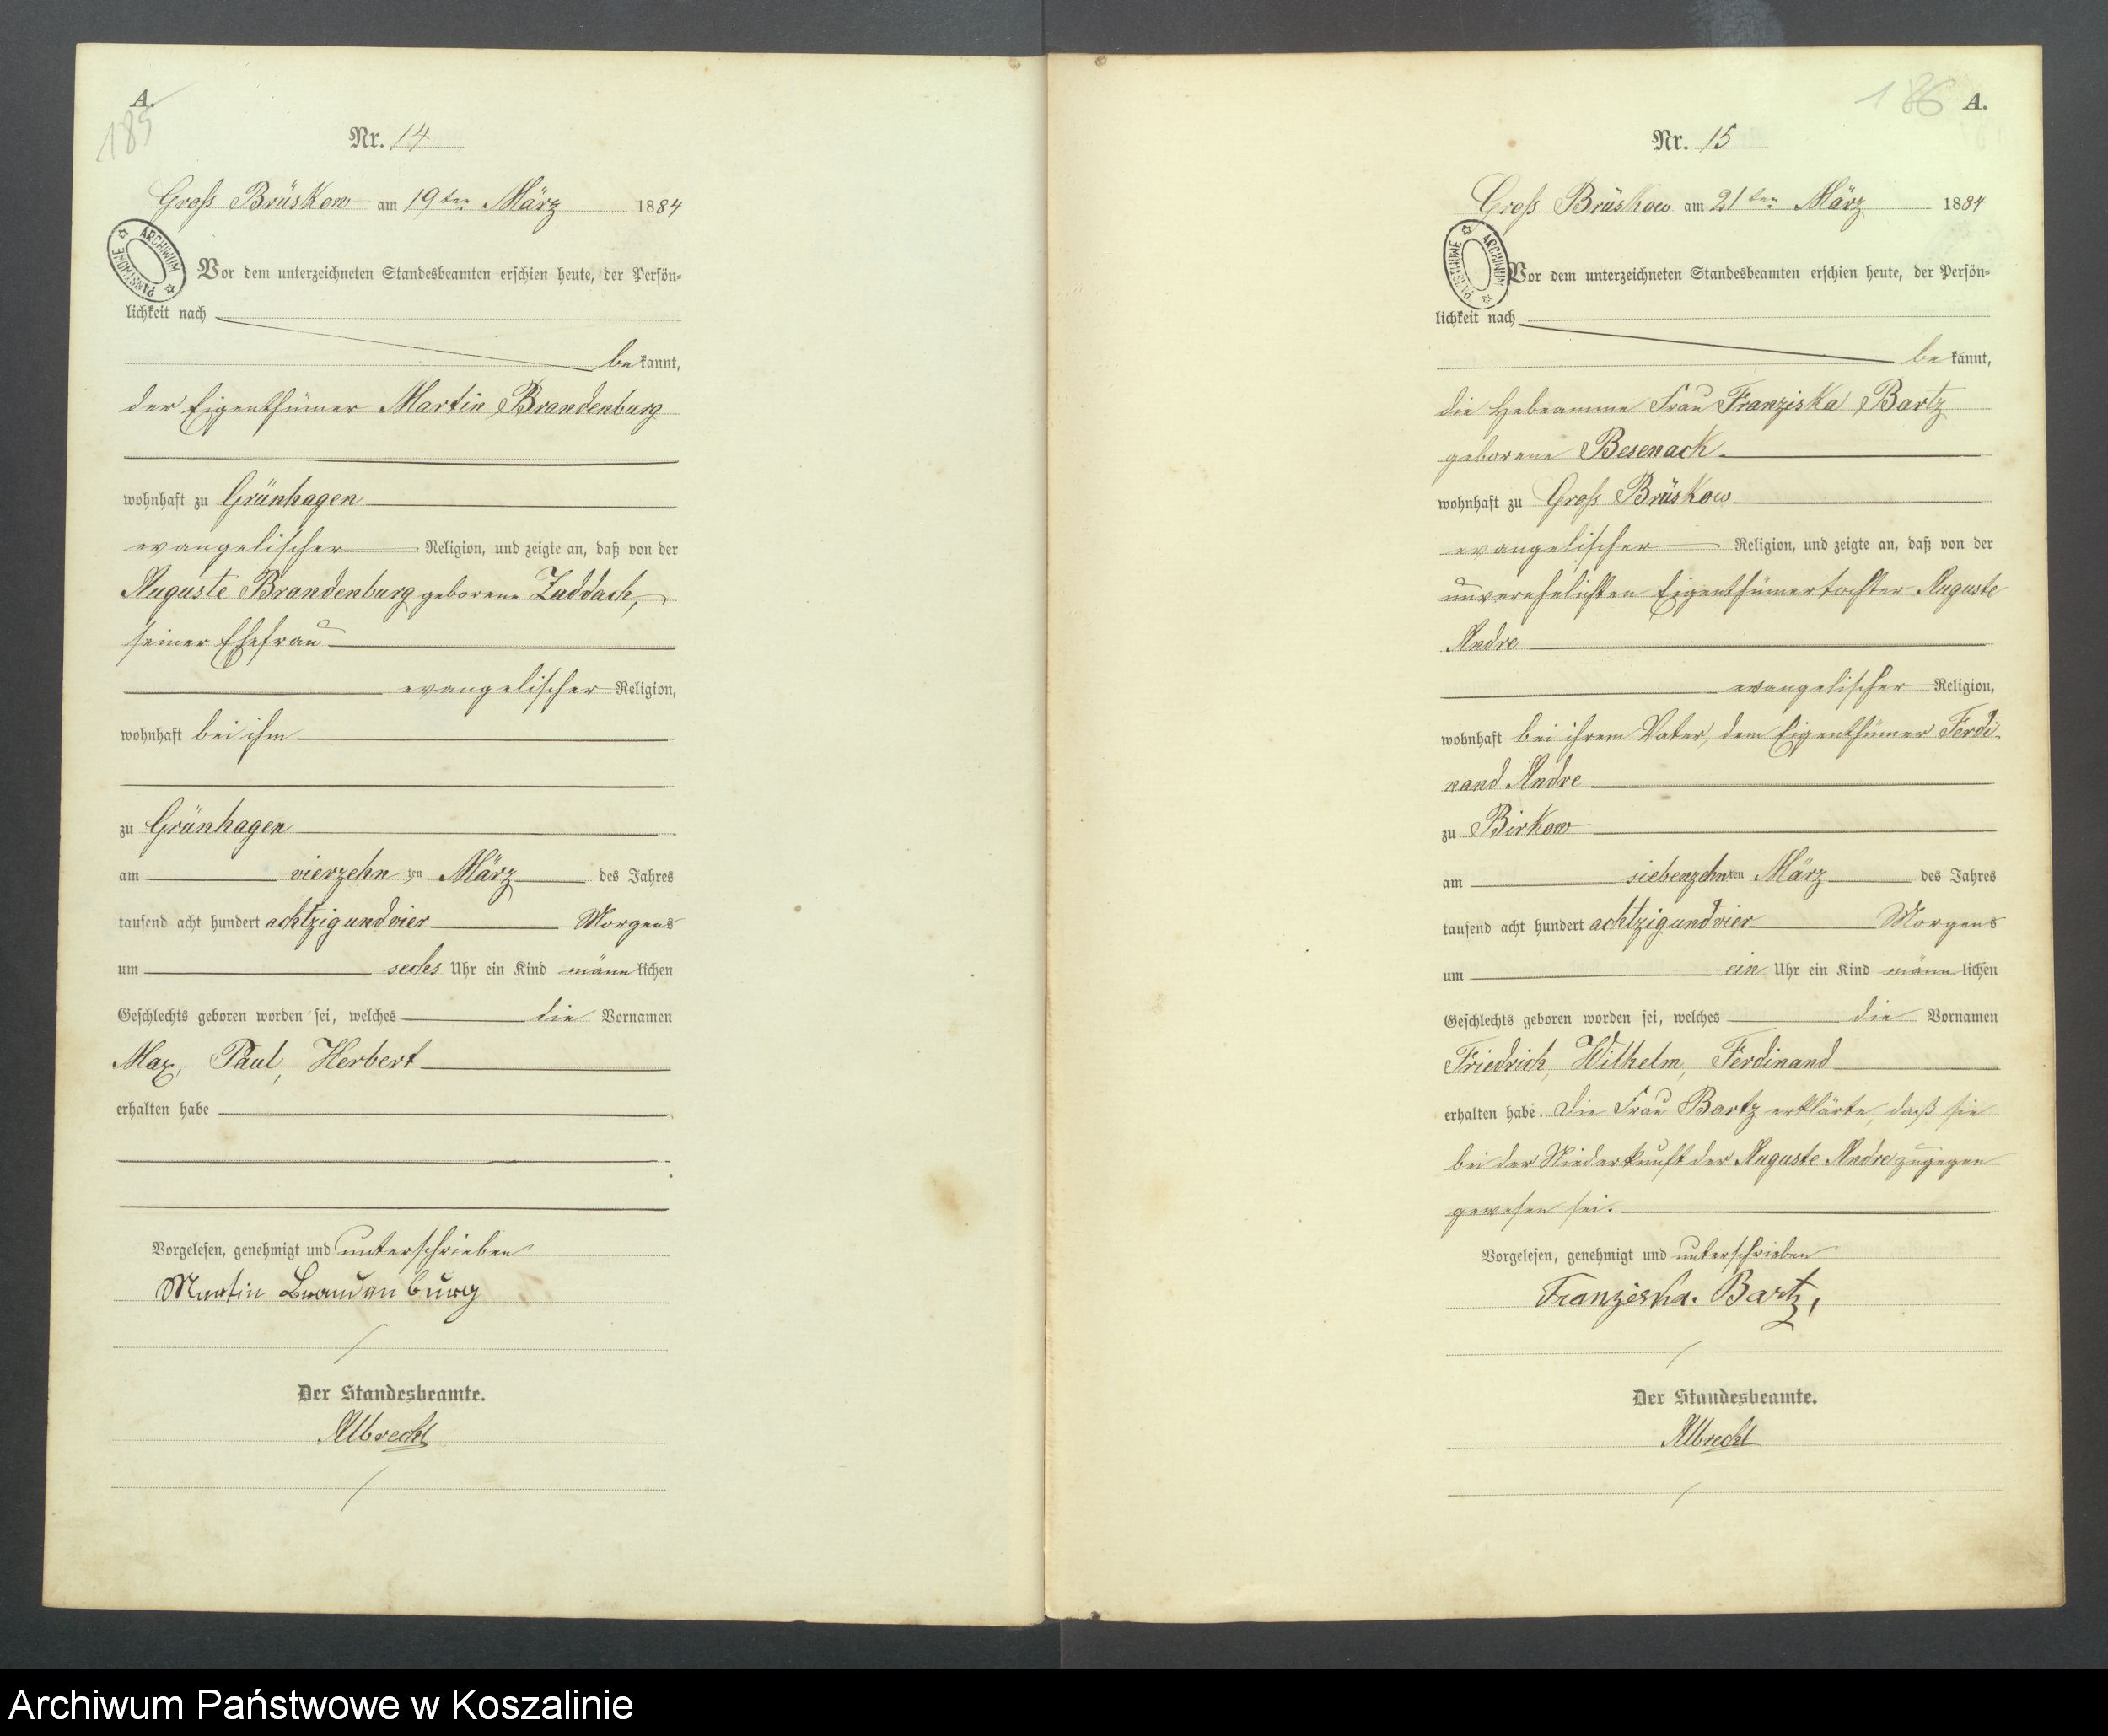 A.
185
Nr. 14
Groß Brüskow am 19ten März 1884
ARCHIWUM PAŃSTWOWE
Vor dem unterzeichneten Standesbeamten erschien heute, der Persön-
lichkeit nach
bekannt,
der Eigenthümer Martin Brandenburg
wohnhaft zu Grünhagen
evangelischer Religion, und zeigte an, daß von der
Auguste Brandenburg geborene Zaddach,
seiner Ehefrau
evangelischer Religion,
wohnhaft bei ihm
zu Grünhagen
am vierzehnten März des Jahres
tausend acht hundert achtzig und vier Morgens
um sechs Uhr ein Kind männlichen
Geschlechts geboren worden sei, welches die Vornamen
Max, Paul, Herbert
erhalten habe
Vorgelesen, genehmigt und unterschrieben
Martin Brandenburg
Der Standesbeamte.
Albrecht
186 A.
Nr. 15
Groß Brüskow am 21ten März 1884
ARCHIWUM PAŃSTWOWE
Vor dem unterzeichneten Standesbeamten erschien heute, der Persön-
lichkeit nach
bekannt,
die Hebeamme Frau Franziska Bartz
geborene Besenack.
wohnhaft zu Groß Brüskow
evangelischer Religion, und zeigte an, daß von der
unverehelichten Eigenthümertochter Auguste
Andre
evangelischer Religion,
wohnhaft bei ihrem Vater, dem Eigenthümer Ferdi-
nand Andre
zu Birkow
am siebenzehnten März des Jahres
tausend acht hundert achtzig und vier Morgens
um ein Uhr ein Kind männlichen
Geschlechts geboren worden sei, welches die Vornamen
Friedrich, Wilhelm, Ferdinand
erhalten habe. Die Frau Bartz erklärte, daß sie
bei der Niederkunft der Auguste Andre zugegen
gewesen sei.
Vorgelesen, genehmigt und unterschrieben
Franziska. Bartz,
Der Standesbeamte.
Albrecht
Archiwum Państwowe w Koszalinie